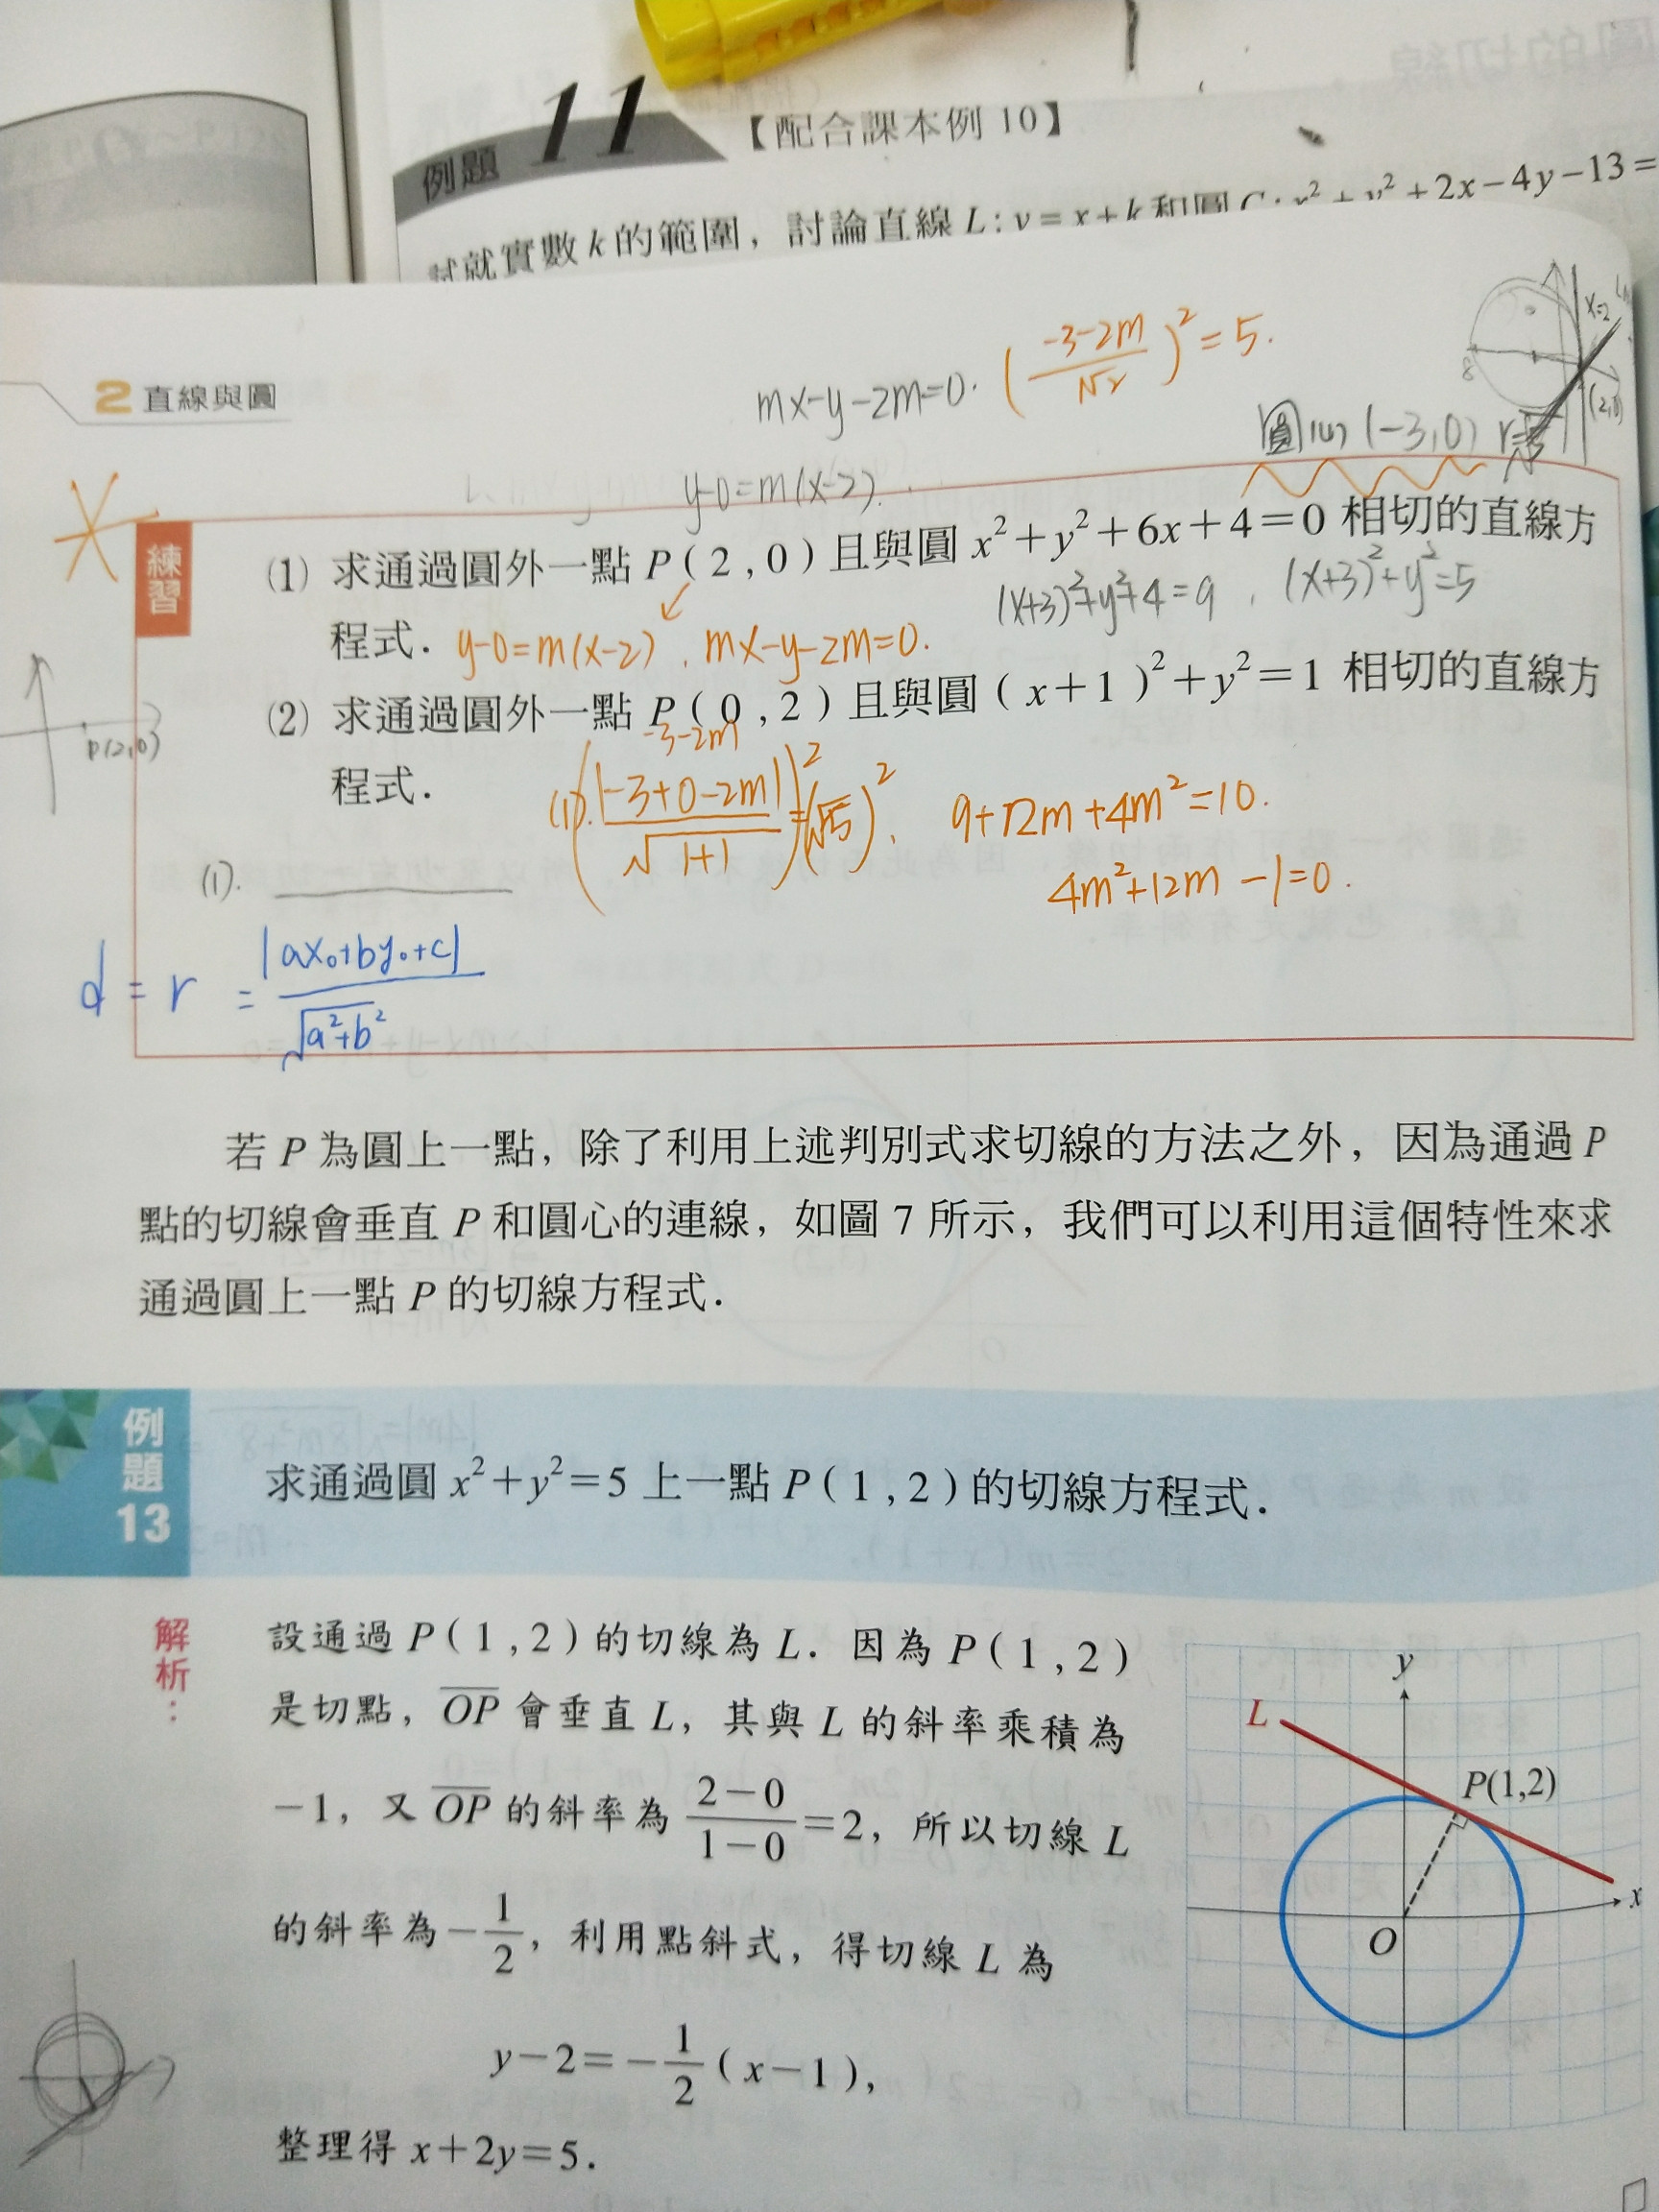 例題 11 【配合課本例 10】
試就實數 k 的範圍，討論直線 L：y＝x＋k 和圓 C：x²＋y²＋2x－4y－13＝
2 直線與圓
mx-y-2m=0. (-3-2m/√2)²=5.
x=2
(2,0)
圓心(-3,0) r=√5
y-0=m(x-2).
練習
(1) 求通過圓外一點 P(2,0) 且與圓 x²＋y²＋6x＋4＝0 相切的直線方
(x+3)²+y²+4=9, (x+3)²+y²=5
程式． y-0=m(x-2), mx-y-2m=0.
(2) 求通過圓外一點 P(0,2) 且與圓 (x＋1)²＋y²＝1 相切的直線方
P(2,0)
-3-2m
程式．
(1). (|-3+0-2m|/√1+1)²=(√5)², 9+12m+4m²=10.
4m²+12m-1=0.
(1).
d=r=|ax₀+by₀+c|/√a²+b²
若 P 為圓上一點，除了利用上述判別式求切線的方法之外，因為通過 P
點的切線會垂直 P 和圓心的連線，如圖 7 所示，我們可以利用這個特性來求
通過圓上一點 P 的切線方程式．
例題 13
求通過圓 x²＋y²＝5 上一點 P(1,2) 的切線方程式．
解析：
設通過 P(1,2) 的切線為 L．因為 P(1,2)
是切點，OP 會垂直 L，其與 L 的斜率乘積為
－1，又 OP 的斜率為 2－0/1－0＝2，所以切線 L
的斜率為－1/2，利用點斜式，得切線 L 為
y－2＝－1/2(x－1)，
整理得 x＋2y＝5．
y
L
P(1,2)
x
O